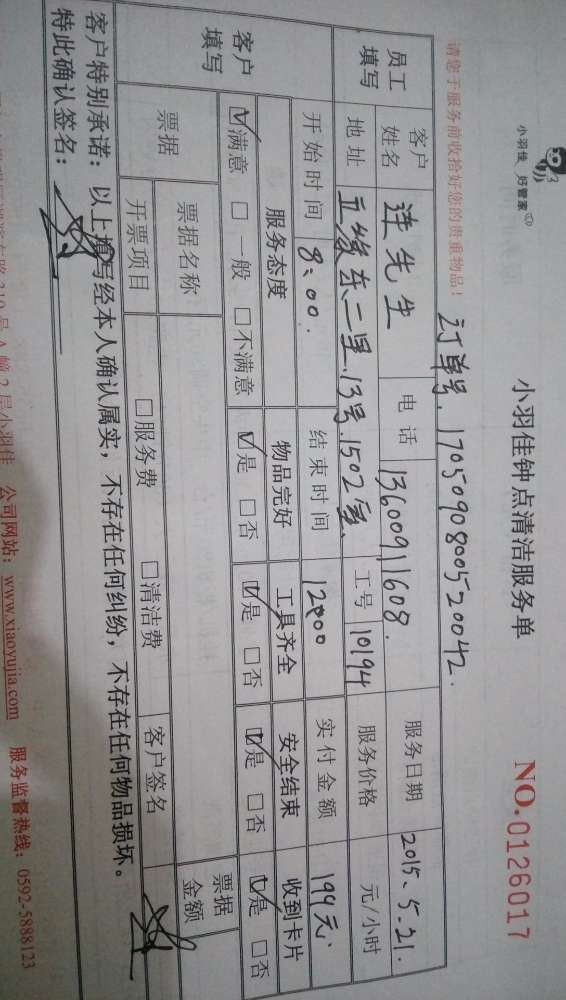 小羽佳 好管家
小羽佳钟点清洁服务单
NO.0126017
请您于服务前收拾好您的贵重物品!
订单号. 1705090800520042.
员工填写 客户姓名 连先生 电话 13600911608. 服务日期 2015、5.21.
地址 东二里.13号.1502室、 工号 10194 服务价格 元/小时
开始时间 8:00. 结束时间 12:00 实付金额 199元
客户填写 服务态度 物品完好 工具齐全 安全结束 收到卡片
☑满意 □一般 □不满意 ☑是 □否 ☑是 □否 ☑是 □否 ☑是 □否
票据 票据名称 票据金额
开票项目 □服务费 □清洁费 客户签名
客户特别承诺:以上填写经本人确认属实,不存在任何纠纷,不存在任何物品损坏。
特此确认签名:
310号A幢2层小羽佳 公司网站:www.xiaoyujia.com 服务监督热线:0592-5888123